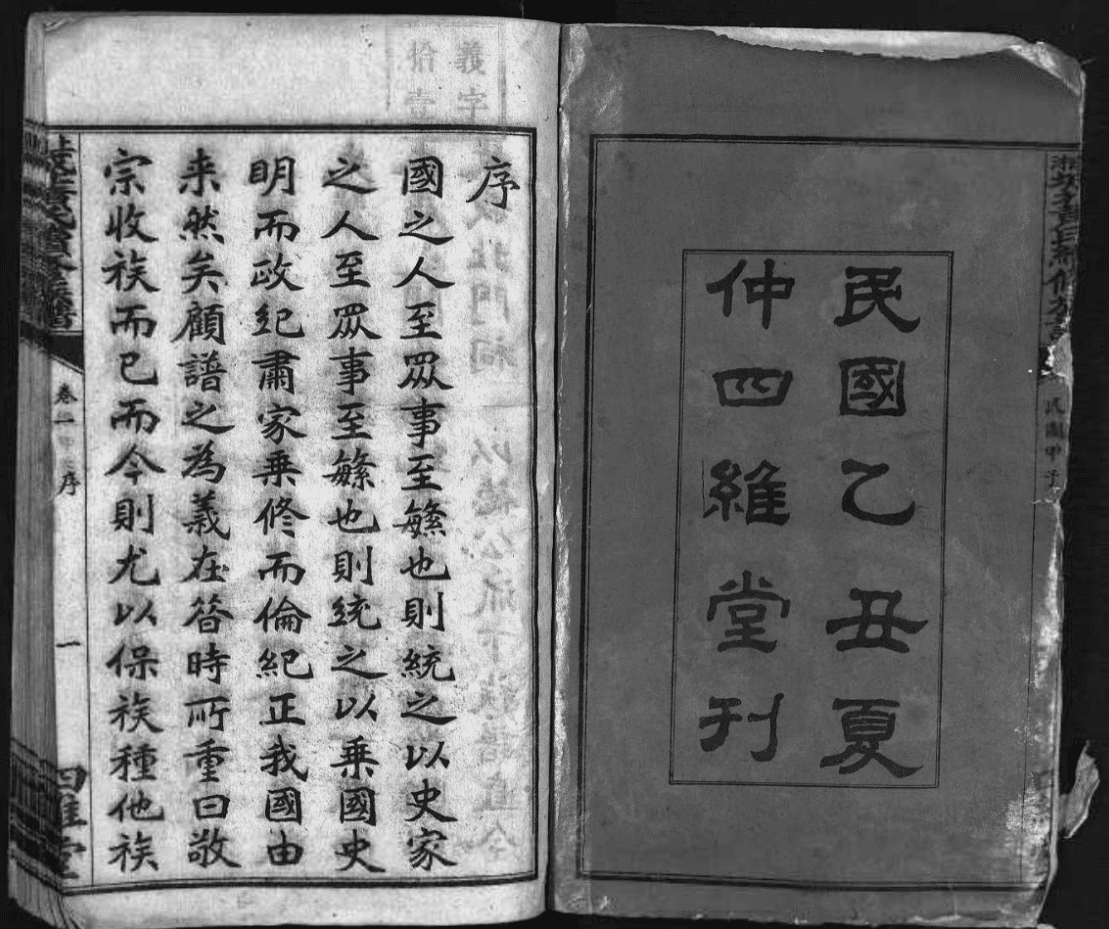 民國乙丑夏
仲四維堂刊
民國甲子
序
國之人至眾事至緐也則統之以史家
之人至眾事至緐也則統之以乘國史
明而政紀肅家乘修而倫紀正我國由
来然矣顧譜之為義在答時所重曰敬
宗收族而已而今則尤以保族種他族
卷二
序
一
四維堂